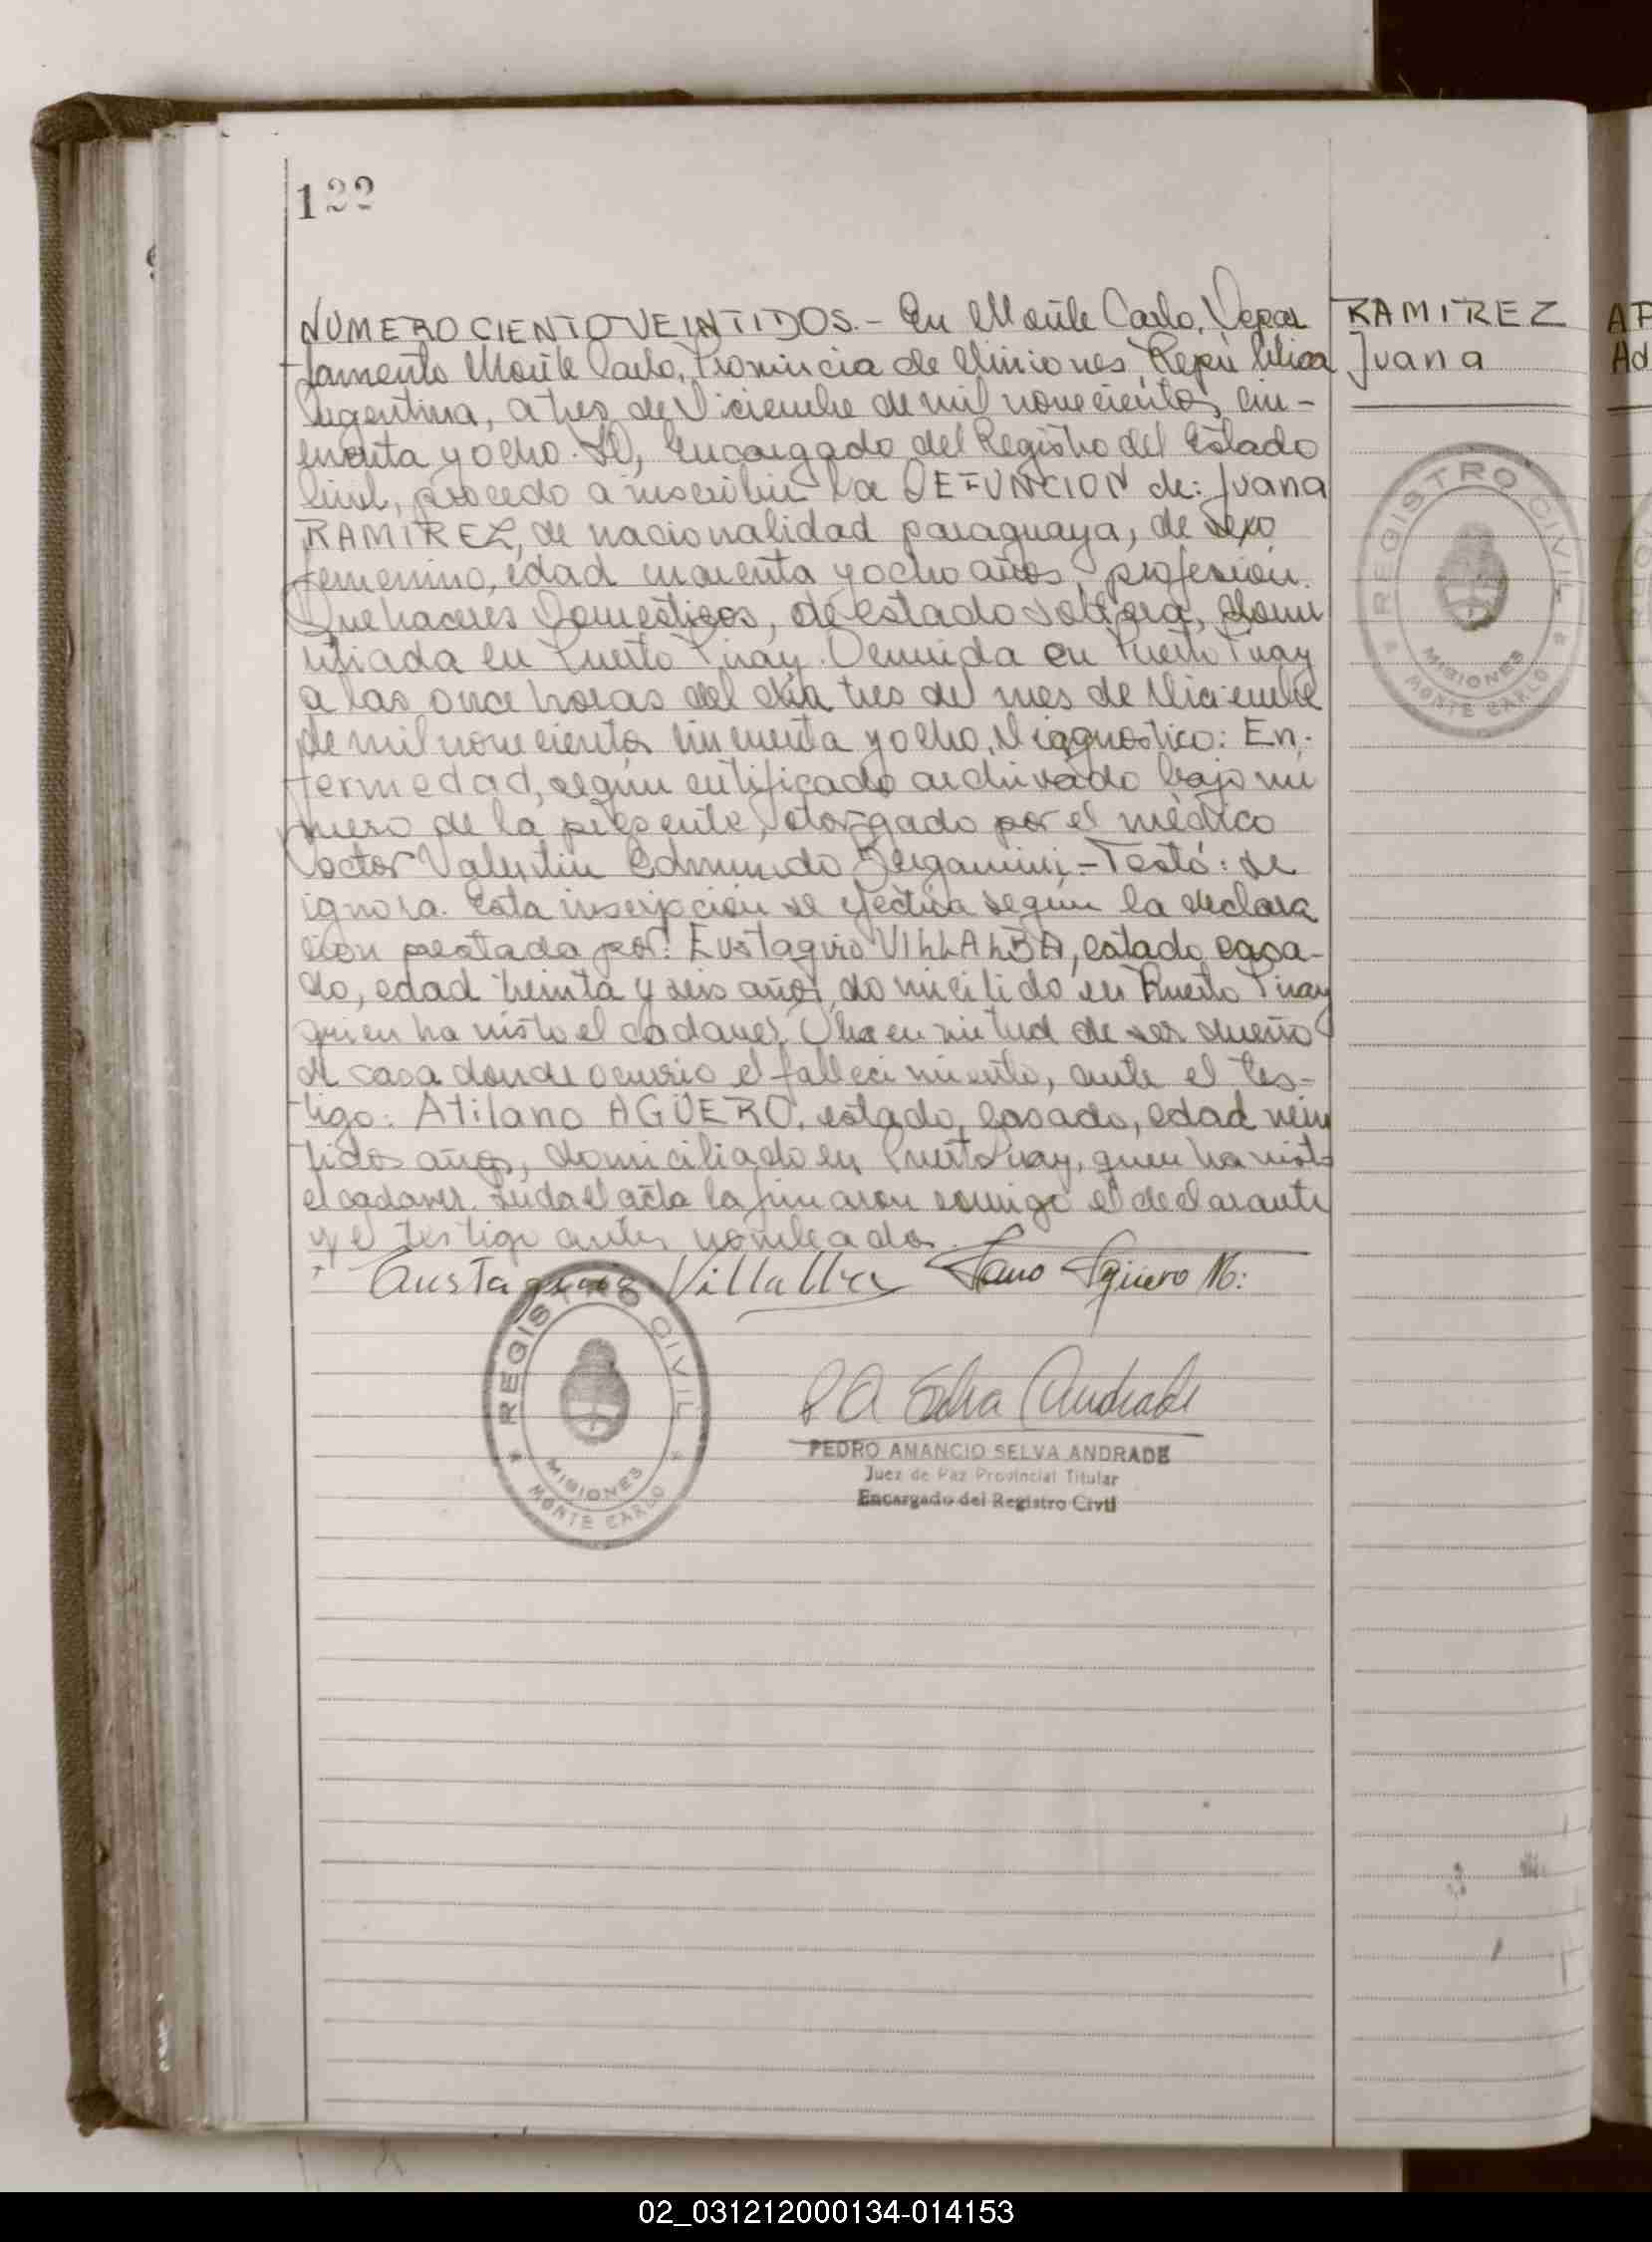 122
NUMERO CIENTO VEINTIDOS.- En Monte Carlo, Depar
tamento Monte Carlo, Provincia de Misiones, República
Argentina, a tres de Diciembre de mil novecientos cin-
cuenta y ocho. Yo, Encargado del Registro del Estado
Civil, procedo a inscribir la DEFUNCION de: Juana
RAMIREZ, de nacionalidad paraguaya, de sexo
femenino, edad cuarenta y ocho años, profesión.
Quehaceres Domesticos, de estado soltera, domi
ciliada en Puerto Piray. Ocurrida en Puerto Piray
a las once horas del día tres del mes de Diciembre
de mil novecientos cincuenta y ocho. Diagnostico: En-
fermedad, según certificado archivado bajo nú
mero de la presente, otorgado por el médico
Doctor Valentin Edmundo Bergamini.- Testó: se
ignora. Esta inscripción se efectúa según la declara
ción prestada por: Eustaquio VILLALBA, estado casa-
do, edad treinta y seis años, domicilido en Puerto Piray
quien ha visto el cadaver. Obra en virtud de ser dueño
de casa donde ocurrio el fallecimiento, ante el tes-
tigo: Atilano AGÜERO, estado, casado, edad vein
tidos años, domiciliado en Puerto Piray, quien ha visto
el cadaver. Leida el acta la firmaron conmigo el declarante
y el testigo antes nombrados.
Eustaquio Villalba Agüero
P A Selva Andrade
PEDRO AMANCIO SELVA ANDRADE
Juez de Paz Provincial Titular
Encargado del Registro Civil
REGISTRO CIVIL
MISIONES
MONTE CARLO
RAMIREZ
Juana
REGISTRO CIVIL
MISIONES
MONTE CARLO
AP
Ad
02_031212000134-014153